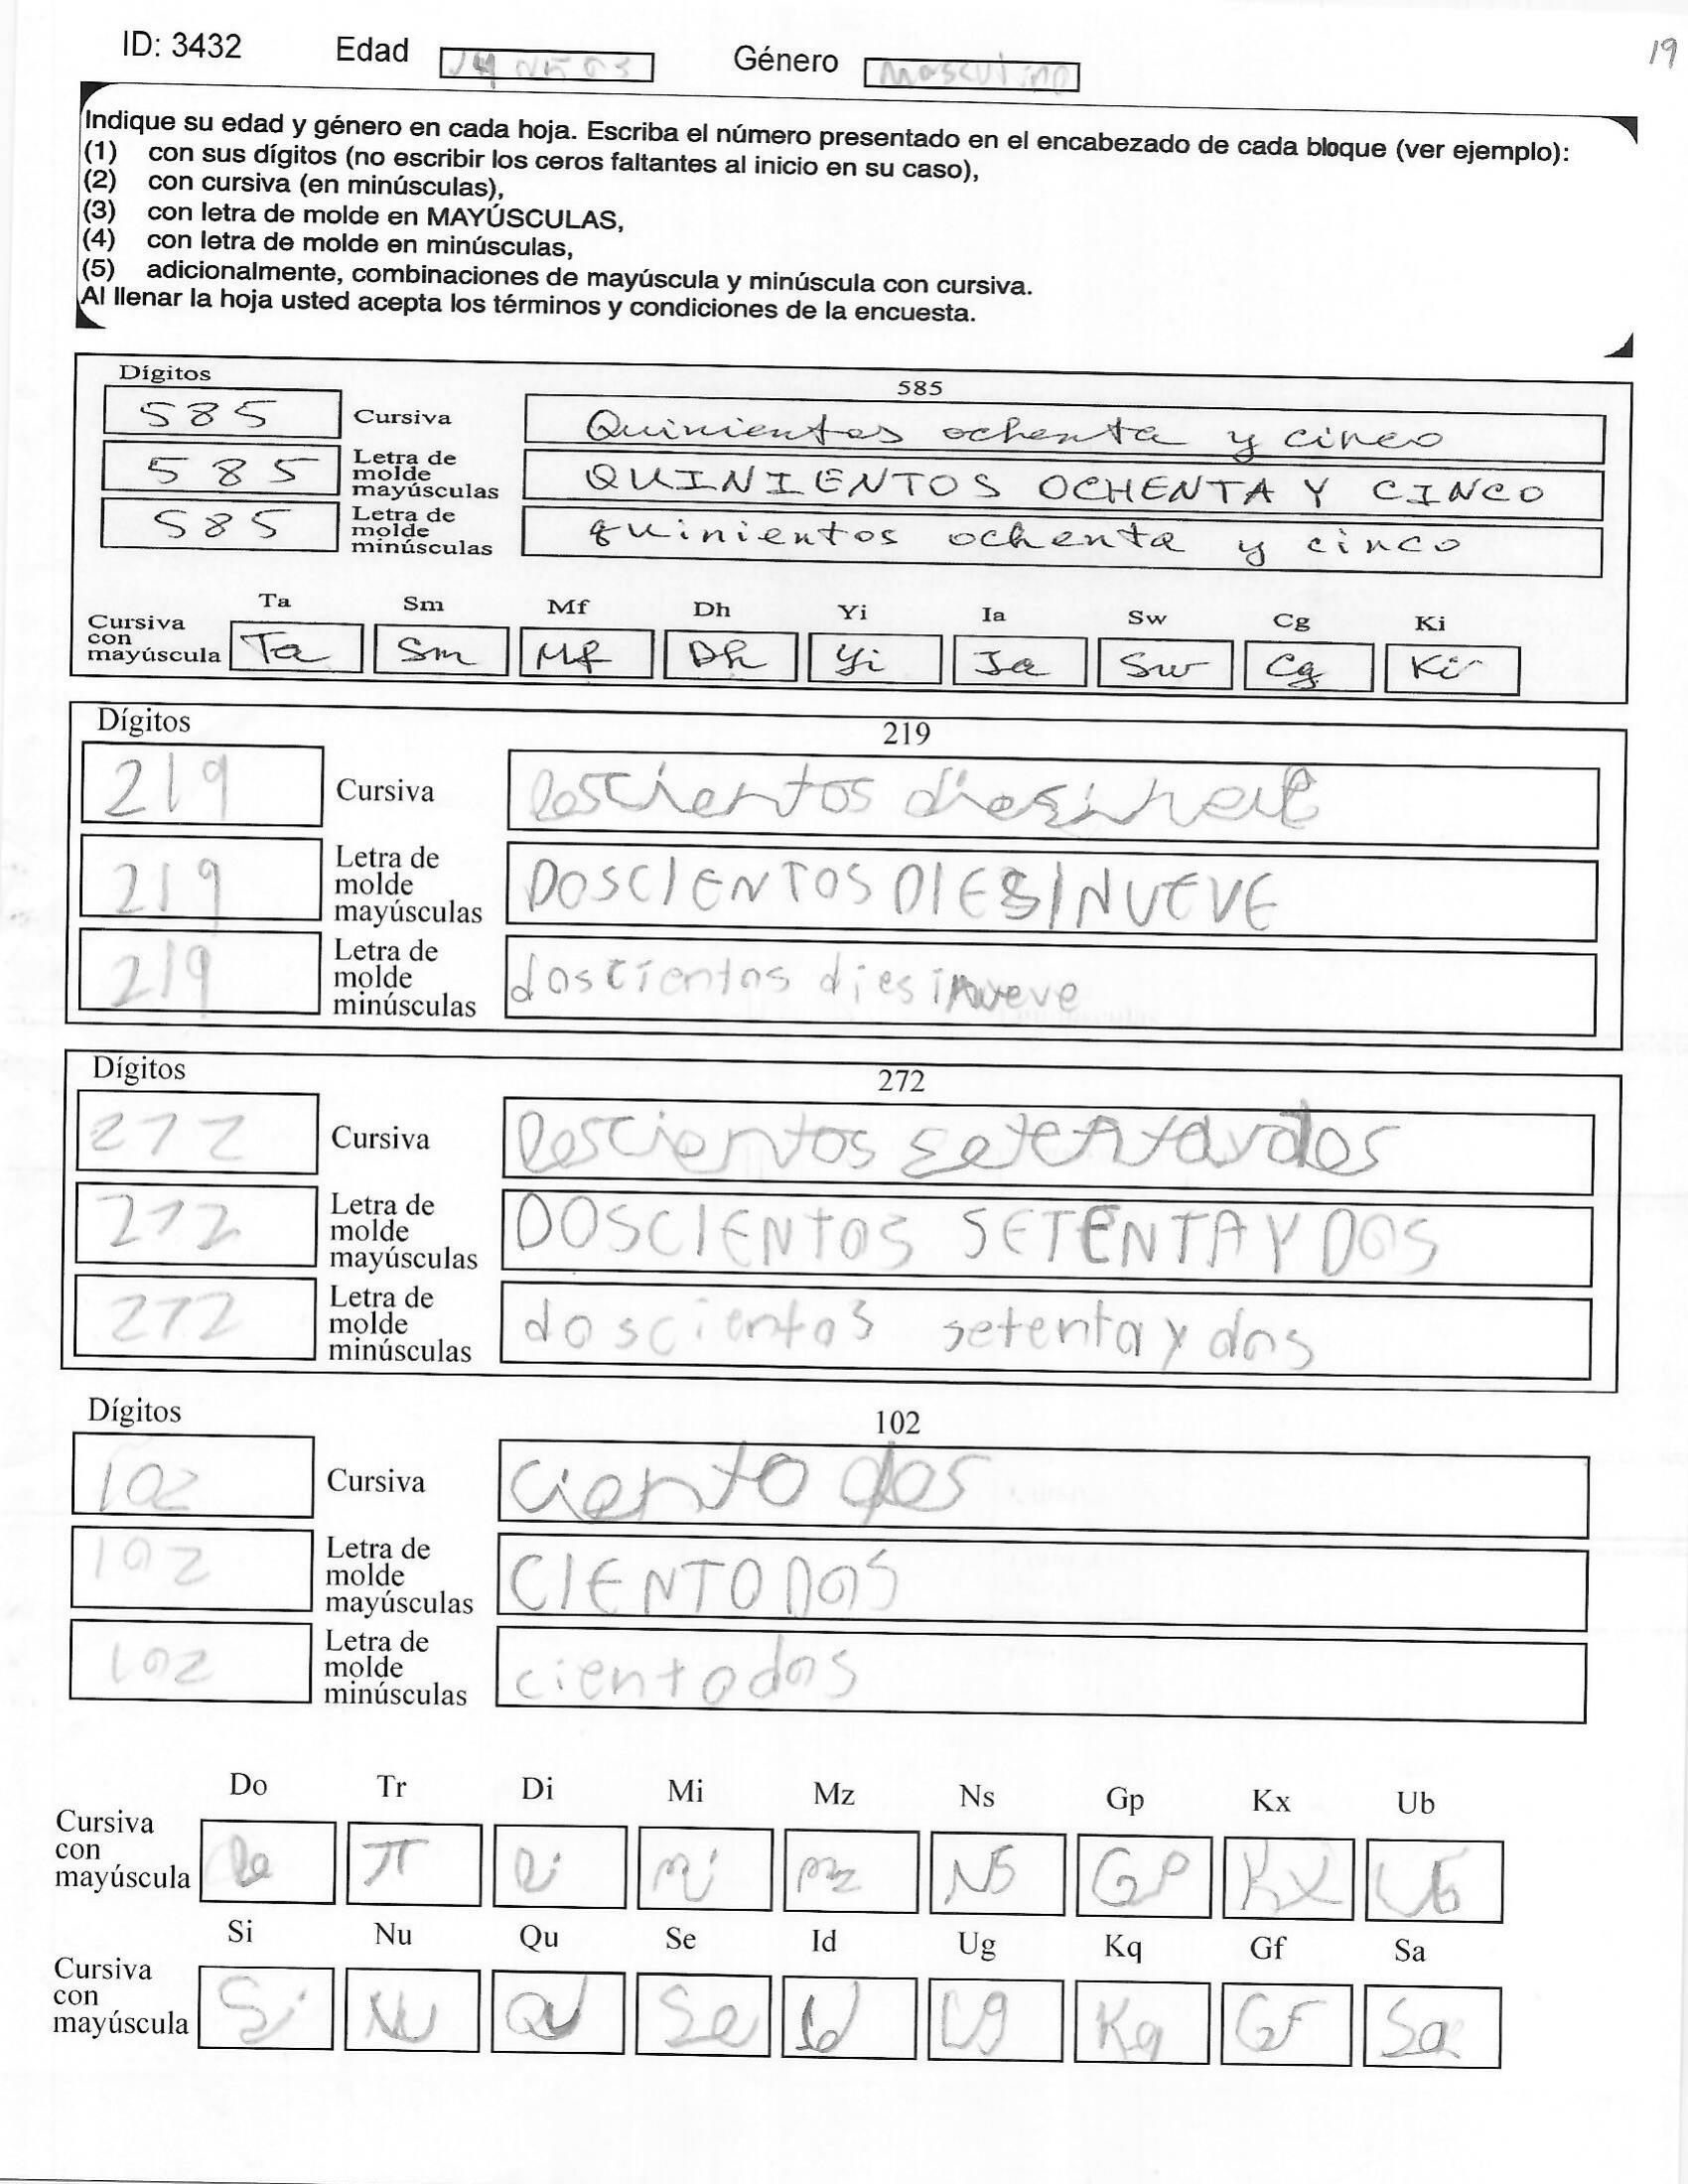 ID: 3432 Edad Género masculino 19
Indique su edad y género en cada hoja. Escriba el número presentado en el encabezado de cada bloque (ver ejemplo):
(1) con sus dígitos (no escribir los ceros faltantes al inicio en su caso),
(2) con cursiva (en minúsculas),
(3) con letra de molde en MAYÚSCULAS,
(4) con letra de molde en minúsculas,
(5) adicionalmente, combinaciones de mayúscula y minúscula con cursiva.
Al llenar la hoja usted acepta los términos y condiciones de la encuesta.
Dígitos 585
585 Cursiva Quinientos ochenta y cinco
585 Letra de molde mayúsculas QUINIENTOS OCHENTA Y CINCO
585 Letra de molde minúsculas quinientos ochenta y cinco
Ta Sm Mf Dh Yi Ia Sw Cg Ki
Cursiva con mayúscula Ta Sm Mf Dh Yi Ia Sw Cg Ki
Dígitos 219
219 Cursiva Doscientos
219 Letra de molde mayúsculas DOSCIENTOS DIESINUEVE
219 Letra de molde minúsculas doscientos diesinueve
Dígitos 272
272 Cursiva Doscientos setentaydos
272 Letra de molde mayúsculas DOSCIENTOS SETENTA Y DOS
272 Letra de molde minúsculas doscientos setenta y dos
Dígitos 102
102 Cursiva ciento dos
102 Letra de molde mayúsculas CIENTO DOS
102 Letra de molde minúsculas ciento dos
Do Tr Di Mi Mz Ns Gp Kx Ub
Cursiva con mayúscula Do Tr Di Mi Mz Ns Gp Kx Ub
Si Nu Qu Se Id Ug Kq Gf Sa
Cursiva con mayúscula Si Nu Qu Se Id Ug Kq Gf Sa